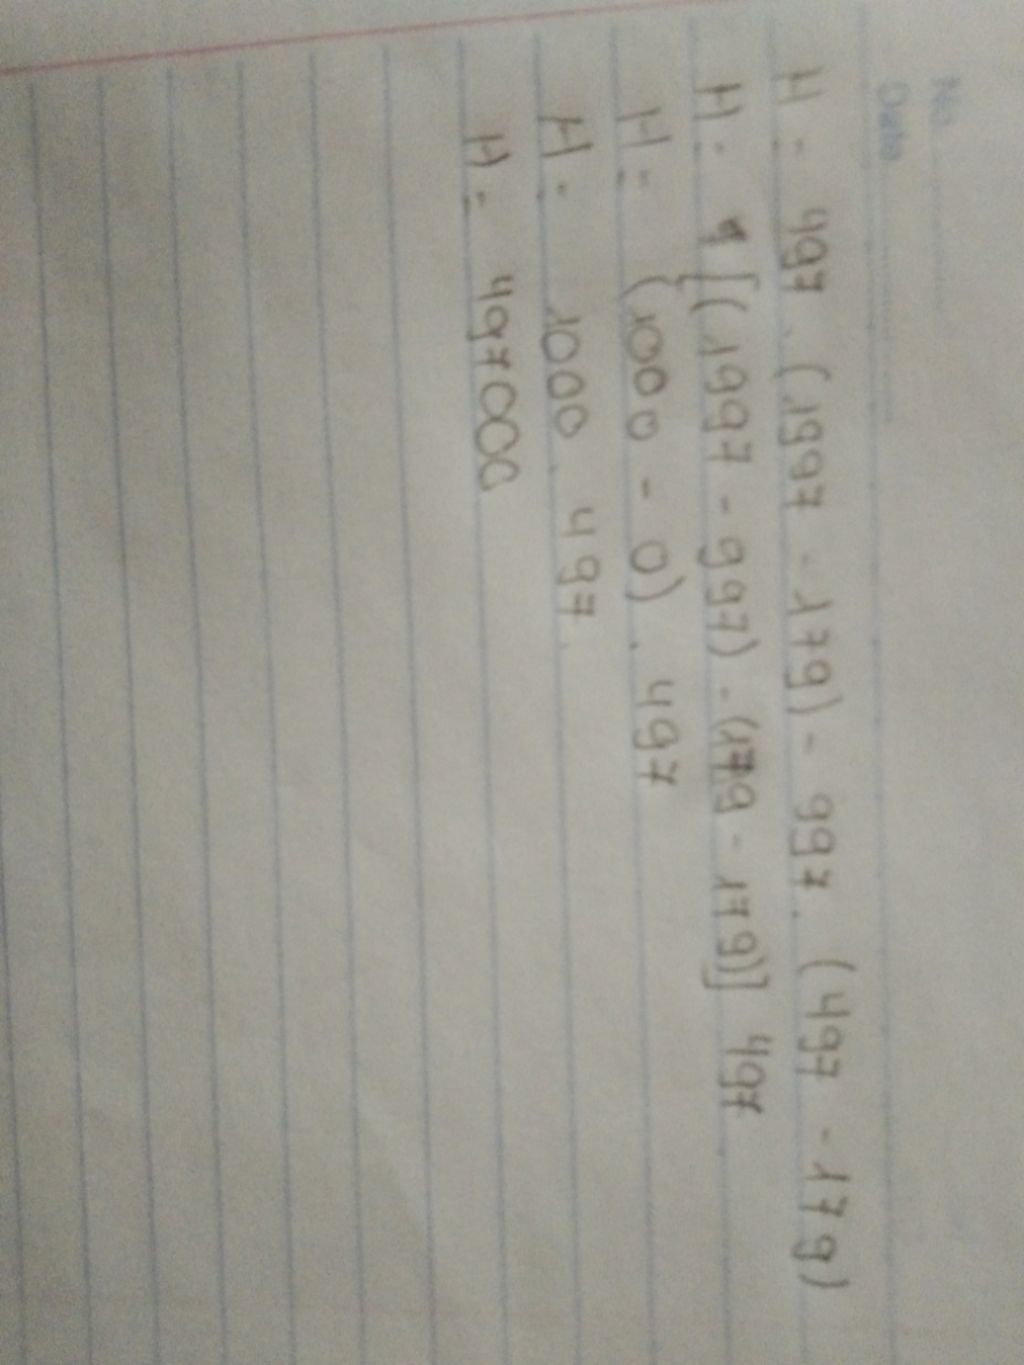 No.
Date
H = 497 . (1997 - 179) - 997 . (497 - 179)
H = [(1997 - 997) - (179 - 179)] 497
H = (1000 - 0) . 497
H = 1000 . 497
H = 497000